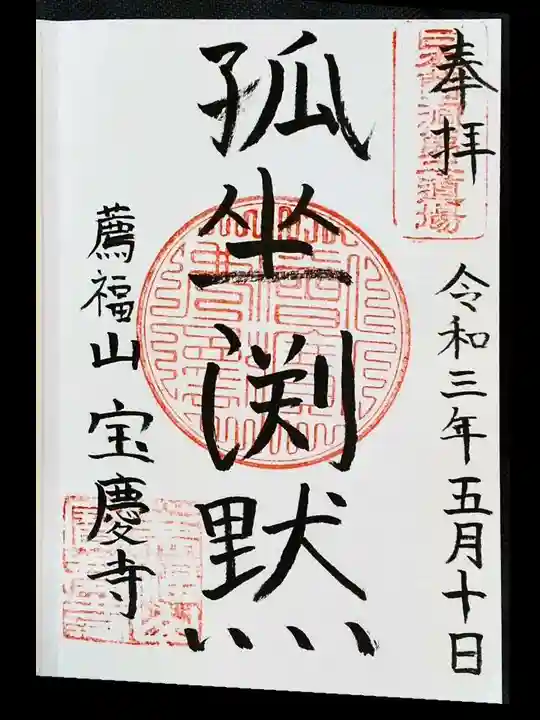 奉拝
令和三年五月十日
孤坐渕黙
薦福山 宝慶寺